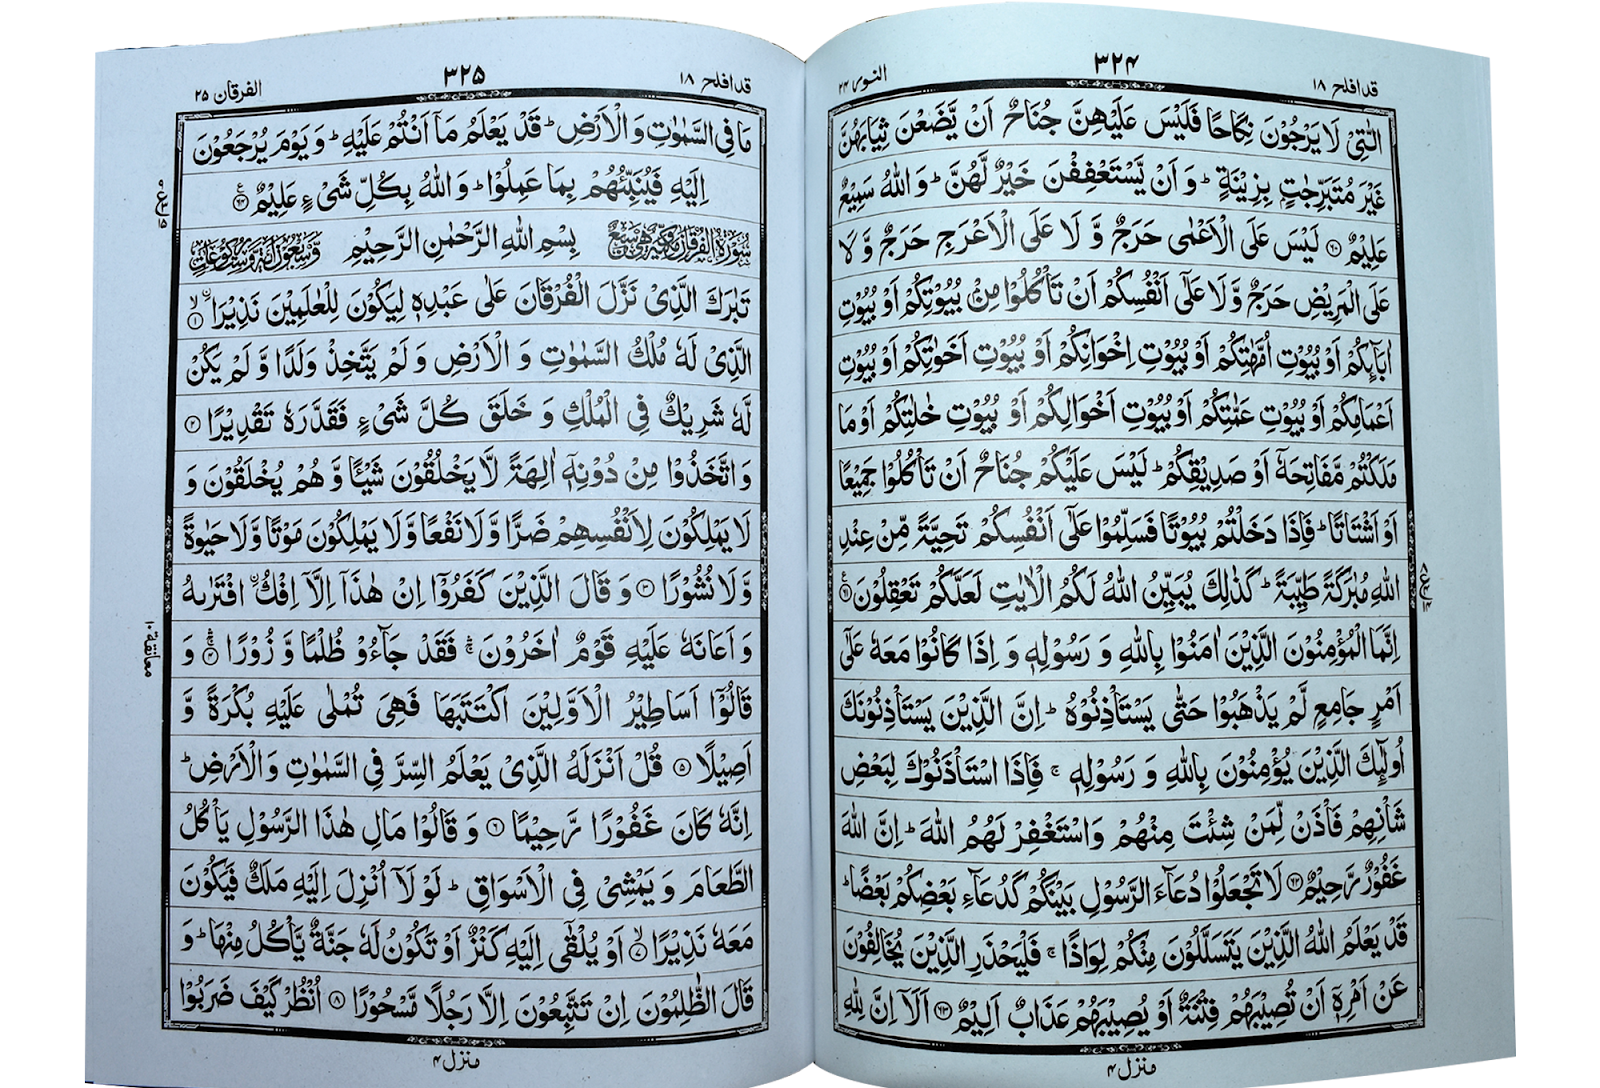 قد افلح ١٨
٣٢٤
النور ٢٤
الّٰتِیْ لَا یَرْجُوْنَ نِكَاحًا فَلَیْسَ عَلَیْهِنَّ جُنَاحٌ اَنْ یَّضَعْنَ ثِیَابَهُنَّ
غَیْرَ مُتَبَرِّجٰتٍۭ بِزِیْنَةٍ ؕ وَ اَنْ یَّسْتَعْفِفْنَ خَیْرٌ لَّهُنَّ ؕ وَ اللّٰهُ سَمِیْعٌ
عَلِیْمٌ ۝۶۰ لَیْسَ عَلَی الْاَعْمٰی حَرَجٌ وَّ لَا عَلَی الْاَعْرَجِ حَرَجٌ وَّ لَا
عَلَی الْمَرِیْضِ حَرَجٌ وَّ لَا عَلٰۤی اَنْفُسِكُمْ اَنْ تَاْكُلُوْا مِنْۢ بُیُوْتِكُمْ اَوْ بُیُوْتِ
اٰبَآىِٕكُمْ اَوْ بُیُوْتِ اُمَّهٰتِكُمْ اَوْ بُیُوْتِ اِخْوَانِكُمْ اَوْ بُیُوْتِ اَخَوٰتِكُمْ اَوْ بُیُوْتِ
اَعْمَامِكُمْ اَوْ بُیُوْتِ عَمّٰتِكُمْ اَوْ بُیُوْتِ اَخْوَالِكُمْ اَوْ بُیُوْتِ خٰلٰتِكُمْ اَوْ مَا
مَلَكْتُمْ مَّفَاتِحَهٗۤ اَوْ صَدِیْقِكُمْ ؕ لَیْسَ عَلَیْكُمْ جُنَاحٌ اَنْ تَاْكُلُوْا جَمِیْعًا
اَوْ اَشْتَاتًا ؕ فَاِذَا دَخَلْتُمْ بُیُوْتًا فَسَلِّمُوْا عَلٰۤی اَنْفُسِكُمْ تَحِیَّةً مِّنْ عِنْدِ
اللّٰهِ مُبٰرَكَةً طَیِّبَةً ؕ كَذٰلِكَ یُبَیِّنُ اللّٰهُ لَكُمُ الْاٰیٰتِ لَعَلَّكُمْ تَعْقِلُوْنَ ۝۶۱
اِنَّمَا الْمُؤْمِنُوْنَ الَّذِیْنَ اٰمَنُوْا بِاللّٰهِ وَ رَسُوْلِهٖ وَ اِذَا كَانُوْا مَعَهٗ عَلٰۤی
اَمْرٍ جَامِعٍ لَّمْ یَذْهَبُوْا حَتّٰی یَسْتَاْذِنُوْهُ ؕ اِنَّ الَّذِیْنَ یَسْتَاْذِنُوْنَكَ
اُولٰٓىِٕكَ الَّذِیْنَ یُؤْمِنُوْنَ بِاللّٰهِ وَ رَسُوْلِهٖ ۚ فَاِذَا اسْتَاْذَنُوْكَ لِبَعْضِ
شَاْنِهِمْ فَاْذَنْ لِّمَنْ شِئْتَ مِنْهُمْ وَاسْتَغْفِرْ لَهُمُ اللّٰهَ ؕ اِنَّ اللّٰهَ
غَفُوْرٌ رَّحِیْمٌ ۝۶۲ لَا تَجْعَلُوْا دُعَآءَ الرَّسُوْلِ بَیْنَكُمْ كَدُعَآءِ بَعْضِكُمْ بَعْضًا ؕ
قَدْ یَعْلَمُ اللّٰهُ الَّذِیْنَ یَتَسَلَّلُوْنَ مِنْكُمْ لِوَاذًا ۚ فَلْیَحْذَرِ الَّذِیْنَ یُخَالِفُوْنَ
عَنْ اَمْرِهٖۤ اَنْ تُصِیْبَهُمْ فِتْنَةٌ اَوْ یُصِیْبَهُمْ عَذَابٌ اَلِیْمٌ ۝۶۳ اَلَاۤ اِنَّ لِلّٰهِ
منزل ۴
قد افلح ١٨
٣٢٥
الفرقان ٢٥
مَا فِی السَّمٰوٰتِ وَ الْاَرْضِ ؕ قَدْ یَعْلَمُ مَاۤ اَنْتُمْ عَلَیْهِ ؕ وَ یَوْمَ یُرْجَعُوْنَ
اِلَیْهِ فَیُنَبِّئُهُمْ بِمَا عَمِلُوْا ؕ وَ اللّٰهُ بِكُلِّ شَیْءٍ عَلِیْمٌ ۝۶۴
بِسْمِ اللّٰهِ الرَّحْمٰنِ الرَّحِیْمِ
تَبٰرَكَ الَّذِیْ نَزَّلَ الْفُرْقَانَ عَلٰی عَبْدِهٖ لِیَكُوْنَ لِلْعٰلَمِیْنَ نَذِیْرَا ۙ۝۱
الَّذِیْ لَهٗ مُلْكُ السَّمٰوٰتِ وَ الْاَرْضِ وَ لَمْ یَتَّخِذْ وَلَدًا وَّ لَمْ یَكُنْ
لَّهٗ شَرِیْكٌ فِی الْمُلْكِ وَ خَلَقَ كُلَّ شَیْءٍ فَقَدَّرَهٗ تَقْدِیْرًا ۝۲
وَ اتَّخَذُوْا مِنْ دُوْنِهٖۤ اٰلِهَةً لَّا یَخْلُقُوْنَ شَیْـًٔا وَّ هُمْ یُخْلَقُوْنَ وَ
لَا یَمْلِكُوْنَ لِاَنْفُسِهِمْ ضَرًّا وَّ لَا نَفْعًا وَّ لَا یَمْلِكُوْنَ مَوْتًا وَّ لَا حَیٰوةً
وَّ لَا نُشُوْرًا ۝۳ وَ قَالَ الَّذِیْنَ كَفَرُوْۤا اِنْ هٰذَاۤ اِلَّاۤ اِفْكُ ﰳافْتَرٰىهُ
وَ اَعَانَهٗ عَلَیْهِ قَوْمٌ اٰخَرُوْنَ ۛۚ فَقَدْ جَآءُوْ ظُلْمًا وَّ زُوْرًا ۛۚ۝۴ وَ
قَالُوْۤا اَسَاطِیْرُ الْاَوَّلِیْنَ اكْتَتَبَهَا فَهِیَ تُمْلٰی عَلَیْهِ بُكْرَةً وَّ
اَصِیْلًا ۝۵ قُلْ اَنْزَلَهُ الَّذِیْ یَعْلَمُ السِّرَّ فِی السَّمٰوٰتِ وَ الْاَرْضِ ؕ
اِنَّهٗ كَانَ غَفُوْرًا رَّحِیْمًا ۝۶ وَ قَالُوْا مَالِ هٰذَا الرَّسُوْلِ یَاْكُلُ
الطَّعَامَ وَ یَمْشِیْ فِی الْاَسْوَاقِ ؕ لَوْ لَاۤ اُنْزِلَ اِلَیْهِ مَلَكٌ فَیَكُوْنَ
مَعَهٗ نَذِیْرًا ۙ۝۷ اَوْ یُلْقٰۤی اِلَیْهِ كَنْزٌ اَوْ تَكُوْنُ لَهٗ جَنَّةٌ یَّاْكُلُ مِنْهَا ؕ وَ
قَالَ الظّٰلِمُوْنَ اِنْ تَتَّبِعُوْنَ اِلَّا رَجُلًا مَّسْحُوْرًا ۝۸ اُنْظُرْ كَیْفَ ضَرَبُوْا
معانقة ١٠
منزل ۴